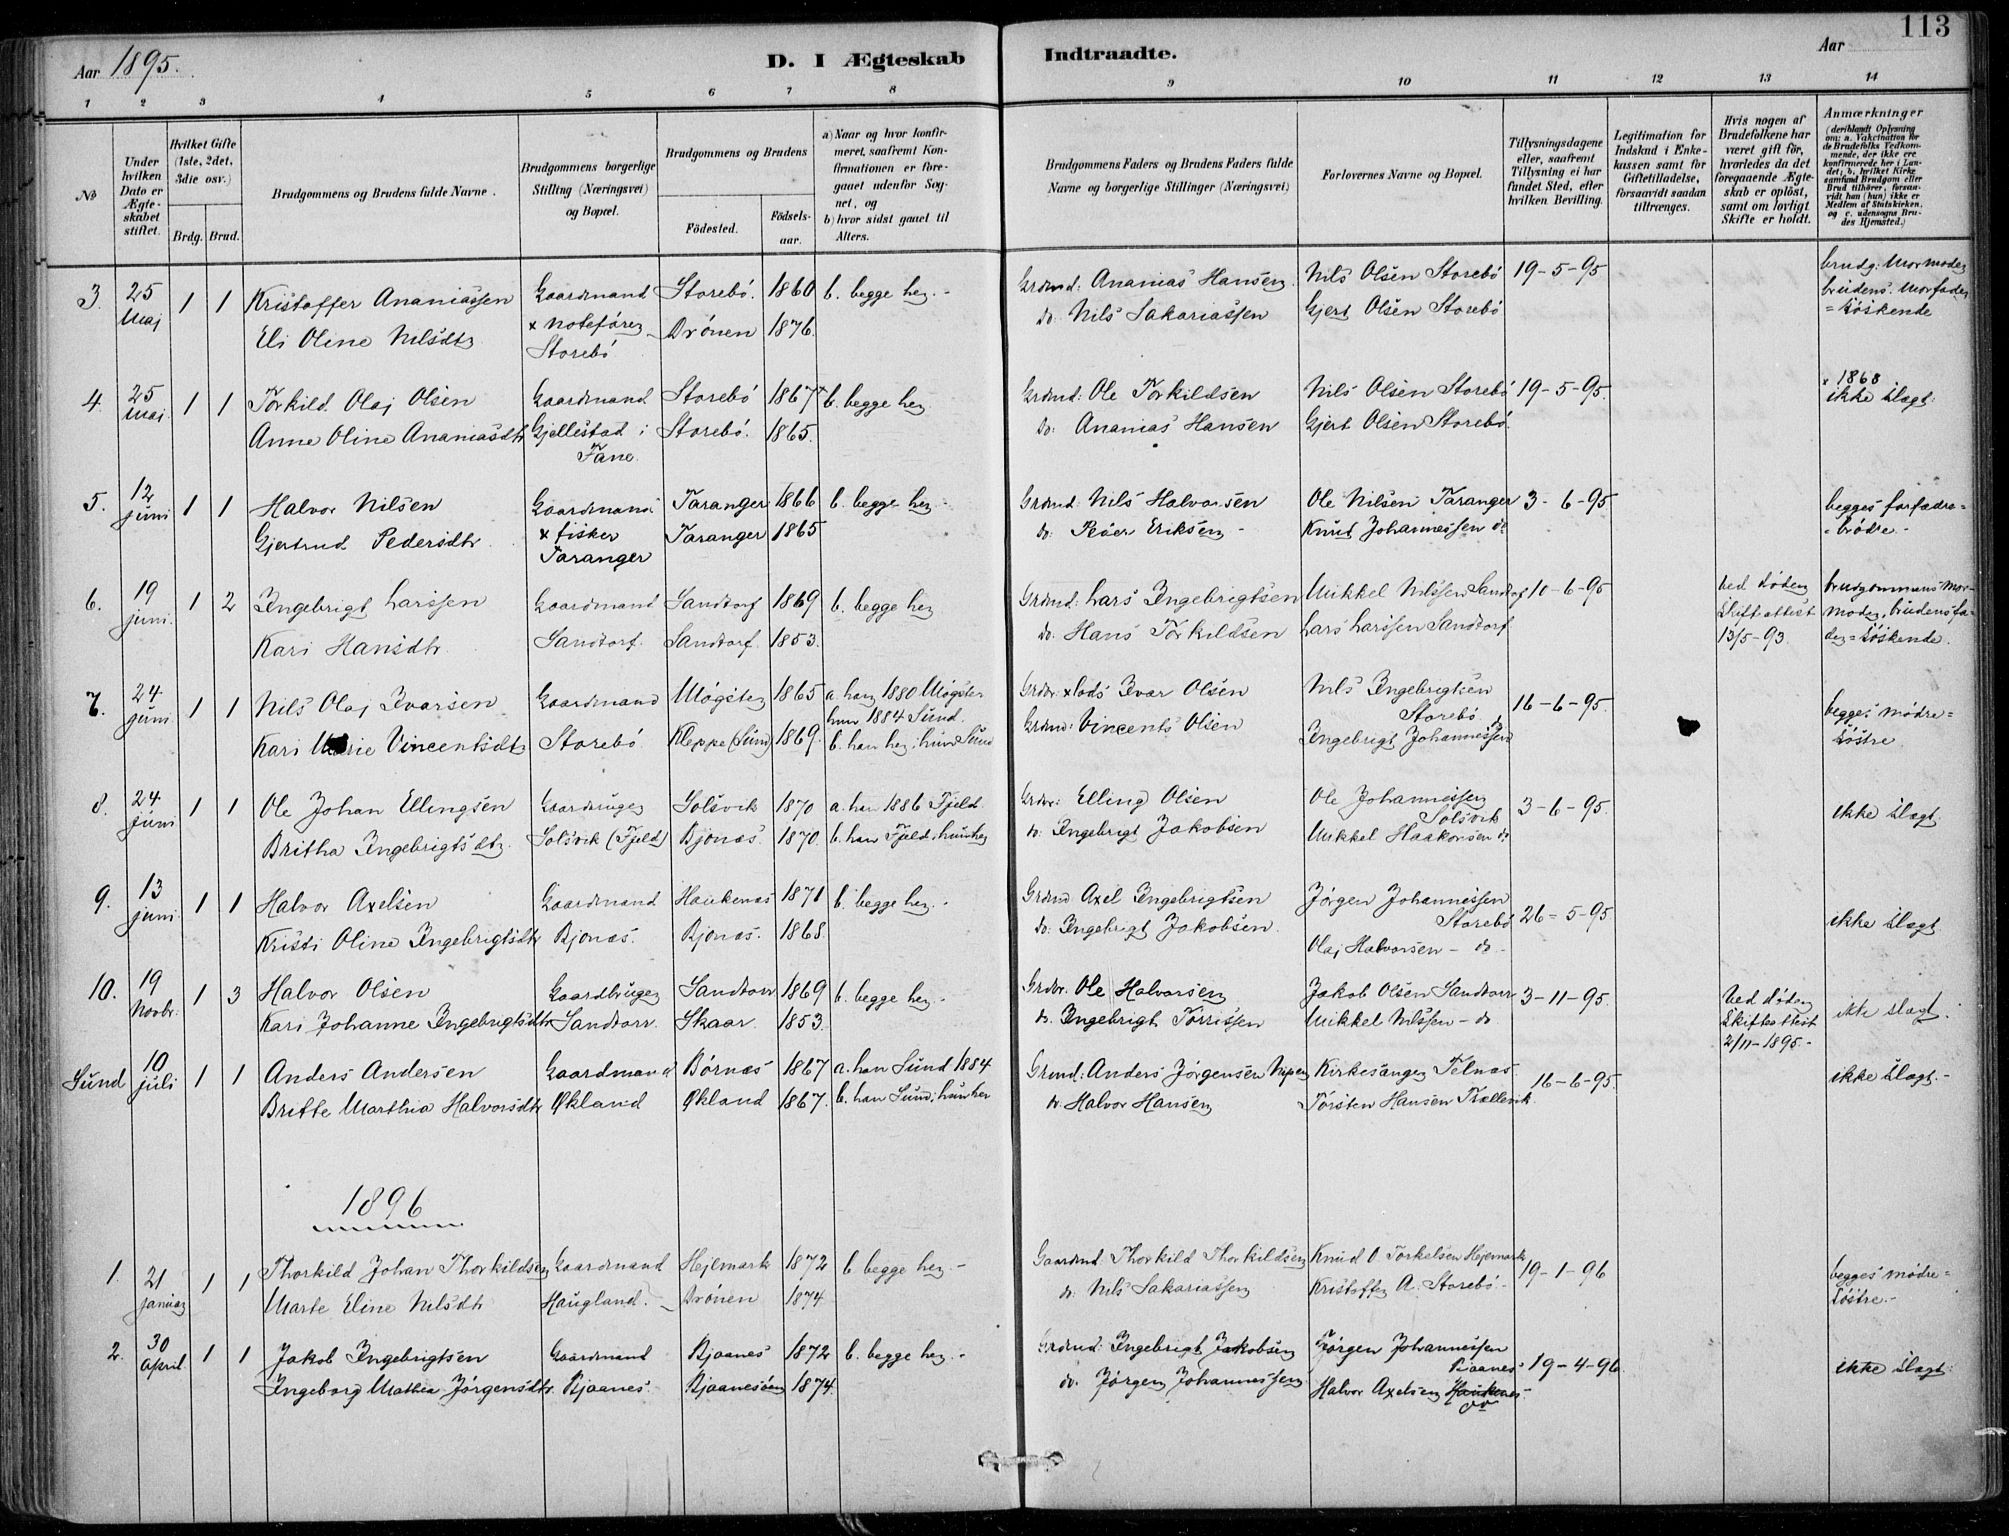 113
Aar 1895.
D. I Ægteskab Indtraadte.
Aar
1 2 3 4 5 6 7 8 9 10 11 12 13 14
No
Under hvilken Dato er Ægteskabet stiftet.
Hvilket Gifte (1ste, 2det, 3die osv.)
Brdg. Brud.
Brudgommens og Brudens fulde Navne.
Brudgommens borgerlige Stilling (Næringsvei) og Bopæl.
Brudgommens og Brudens
Födested.
Födselsaar.
a) Naar og hvor konfirmeret, saafremt Konfirmationen er foregaaet udenfor Sognet, og
b) hvor sidst gaaet til Alters.
Brudgommens Faders og Brudens Faders fulde Navne og borgerlige Stillinger (Næringsvei)
Forlovernes Navne og Bopæl.
Tillysningsdagene eller, saafremt Tillysning ei har fundet Sted, efter hvilken Bevilling.
Legitimation for Indskud i Enkekassen samt for Giftetilladelse, forsaavidt saadan tiltrænges.
Hvis nogen af Brudefolkene har været gift för, hvorledes da det foregaaende Ægteskab er oplöst, samt om lovligt Skifte er holdt.
Anmærkninger (deriblandt Oplysning om: a. Vakcination for de Brudefolks Vedkommende, der ikke ere konfirmerede her i Landet; b. hvilket Kirkesamfund Brudgom eller Brud tilhörer, forsaavidt han (hun) ikke er Medlem af Statskirken, og c. udensogns Brudes Hjemsted.)
3. 25 Maj 1 1 Kristoffer Ananiassen Gaardmand Storebö. 1860 b. begge her.- Grdmd: Ananias Hansen. Nils Olsen Storebö 19-5-95 brudg: Mormoder
Eli Oline Nilsdtr x noteförer Storebö Drönen 1876. do. Nils Sakariassen Gjert Olsen Storebö brudens Morfader = söskende
4. 25 Maj 1 1 Torkild Olaj Olsen Gaardmand Storebö 1867x b. begge her Grdmd: Ole Torkildsen Nils Olsen Storebö 19-5-95. x 1868 ikke slægt.
Anne Oline Ananiasdtr Gjellestad i Fane. Storebö. 1865. do: Ananias Hansen Gjert Olsen Storebö.
5. 12 juni 1 1 Halvor Nilsen Gaardmand Taranger 1866 b. begge her- Grdmd: Nils Halvorsen Ole Nilsen Taranger 3-6-95 begges forfædre=
Gjertrud Pedersdtr. x fisker Taranger Taranger 1865 do: Peder Eriksen - Knut Johannessen do = brödre.-
6. 19 juni. 1 2 Ingebrigt Larssen Gaardmand Sandtorf 1869 b. begge her Grdmd: Lars Ingebrigtsen Mikkel Nilssen Sandtorf 10-6-95 Ved döden brudgommens Mor-
Kari Hansdtr Sandtorf. Sandtorf. 1853. do: Hans Torkildsen Lars Larssen Sandtorf Skift.attest 13/5-93. moder, brudens fader = söskende.
7. 24 juni 1 1 Nils Olaj Ivarsen Gaardmand Mögster 1865 a. han 1880 Mögster Grdbr: x lods Ivar Olsen Nils Ingebrigtsen Storebö 16-6-95. begges mödre=
hun 1884 Sund.
Kari Marie Vincentsdtr Storebö Kleppe (Sund) 1869. b. han her, hun Sund Grdmd: Vincents Olsen Ingebrigt Johannessen do söstre.
8. 24 juni 1 1 Ole Johan Ellingsen Gaardbruger Solsvik 1870 a. han 1886 Fjeld. Grdbr: Elling Olsen Ole Johannessen Solsvik 3-6-95. ikke slægt.
Britha Ingebrigtsdtr. Solsvik (Fjeld) Bjönæs. 1870. b. han Fjeld, hun her do: Ingebrigt Jakobsen Mikkel Haakonsen do
9. 13 juni 1 1 Halvor Axelsen Gaardmand Haukenæs 1871 b. begge her.- Grdmd Axel Ingebrigtsen Jörgen Johannessen Storebö 26-5-95 ikke slægt
Kristi Oline Ingebrigtsdtr Bjonæs. Bjonæs. 1868. do: Ingebrigt Jakobsen. Olaj Halvorsen - do -
10. 19 Novbr. 1 3 Halvor Olsen Gaardbruger Sandtorv 1869 b. begge her.- Grdbr. Ole Halvorsen Jakob Olsen Sandtorv 3-11-95. Ved döden ikke slægt.
Kari Johanne Ingebrigtsdtr Sandtorv. Skaar. 1853. do. Ingebrigt Torrissen Mikkel Nilssen - do Skifteattest 2/11-1895.-
Sund 10 juli 1 1 Anders Andersen Gaardmand Börnæs 1867 a. han Sund 1884 Grmd: Anders Jörgensen Nipen Kirkesanger Telnæs 16-6-95. ikke slægt.-
Britte Marthia Halvorsdtr Økland Økland 1867. b. han Sund, hun her do: Halvor Hansen Torsten Hansen Trællevik
1896
1. 21 januar 1 1 Thorkild Johan Thorkildsen Gaardmand Hejlmark 1872 b begge her.- Gaardmd Thorkild Thorkildsen Knud O. Torkelsen Hejlmark 19-1-96 begges mödre=
Marte Eline Nilsdtr Haugland. Drönen 1874 do: Nils Sakariassen Kristoffer A. Storebö.- söstre.-
2. 30 April 1 1 Jakob Ingebrigtsen Gaardmand Bjaanes 1872 b. begge her.- Grdmd: Ingebrigt Jakobsen Jörgen Johannessen Bjaanes 19-4-96 ikke slægt.
Ingeborg Mathea Jörgensdtr. Bjaanes. Bjaanesöen 1874. do. Jörgen Johannessen Halvor Axelsen Haukenes. do